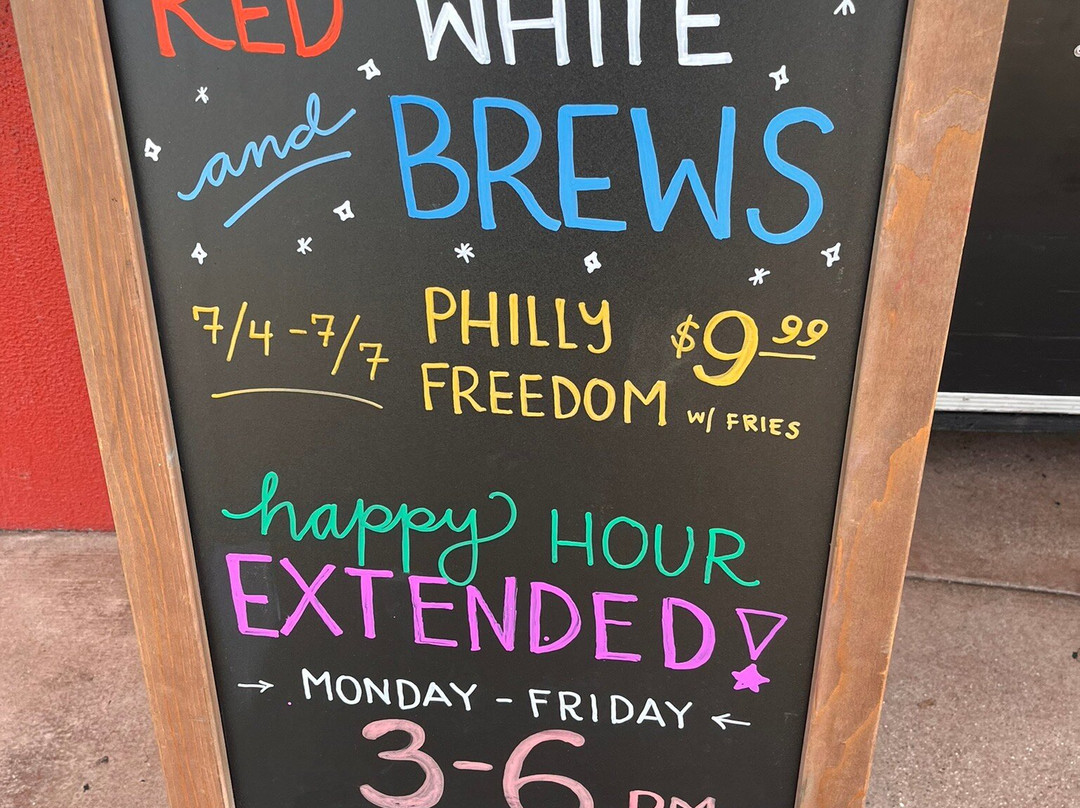 RED WHITE
and BREWS
7/4-7/7 PHILLY $9.99
FREEDOM W/ FRIES
happy HOUR
EXTENDED!
→ MONDAY - FRIDAY ←
3-6 PM